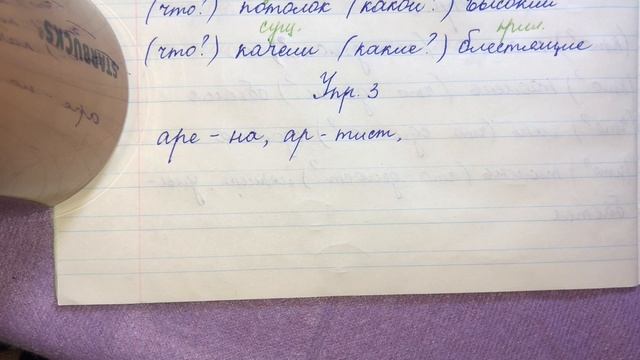 (что?) потолок (какой?) высокий
сущ. прил.
(что?) качели (какие?) блестящие
Упр. 3
аре - на, ар - тист,
STARBUCKS
аре - на